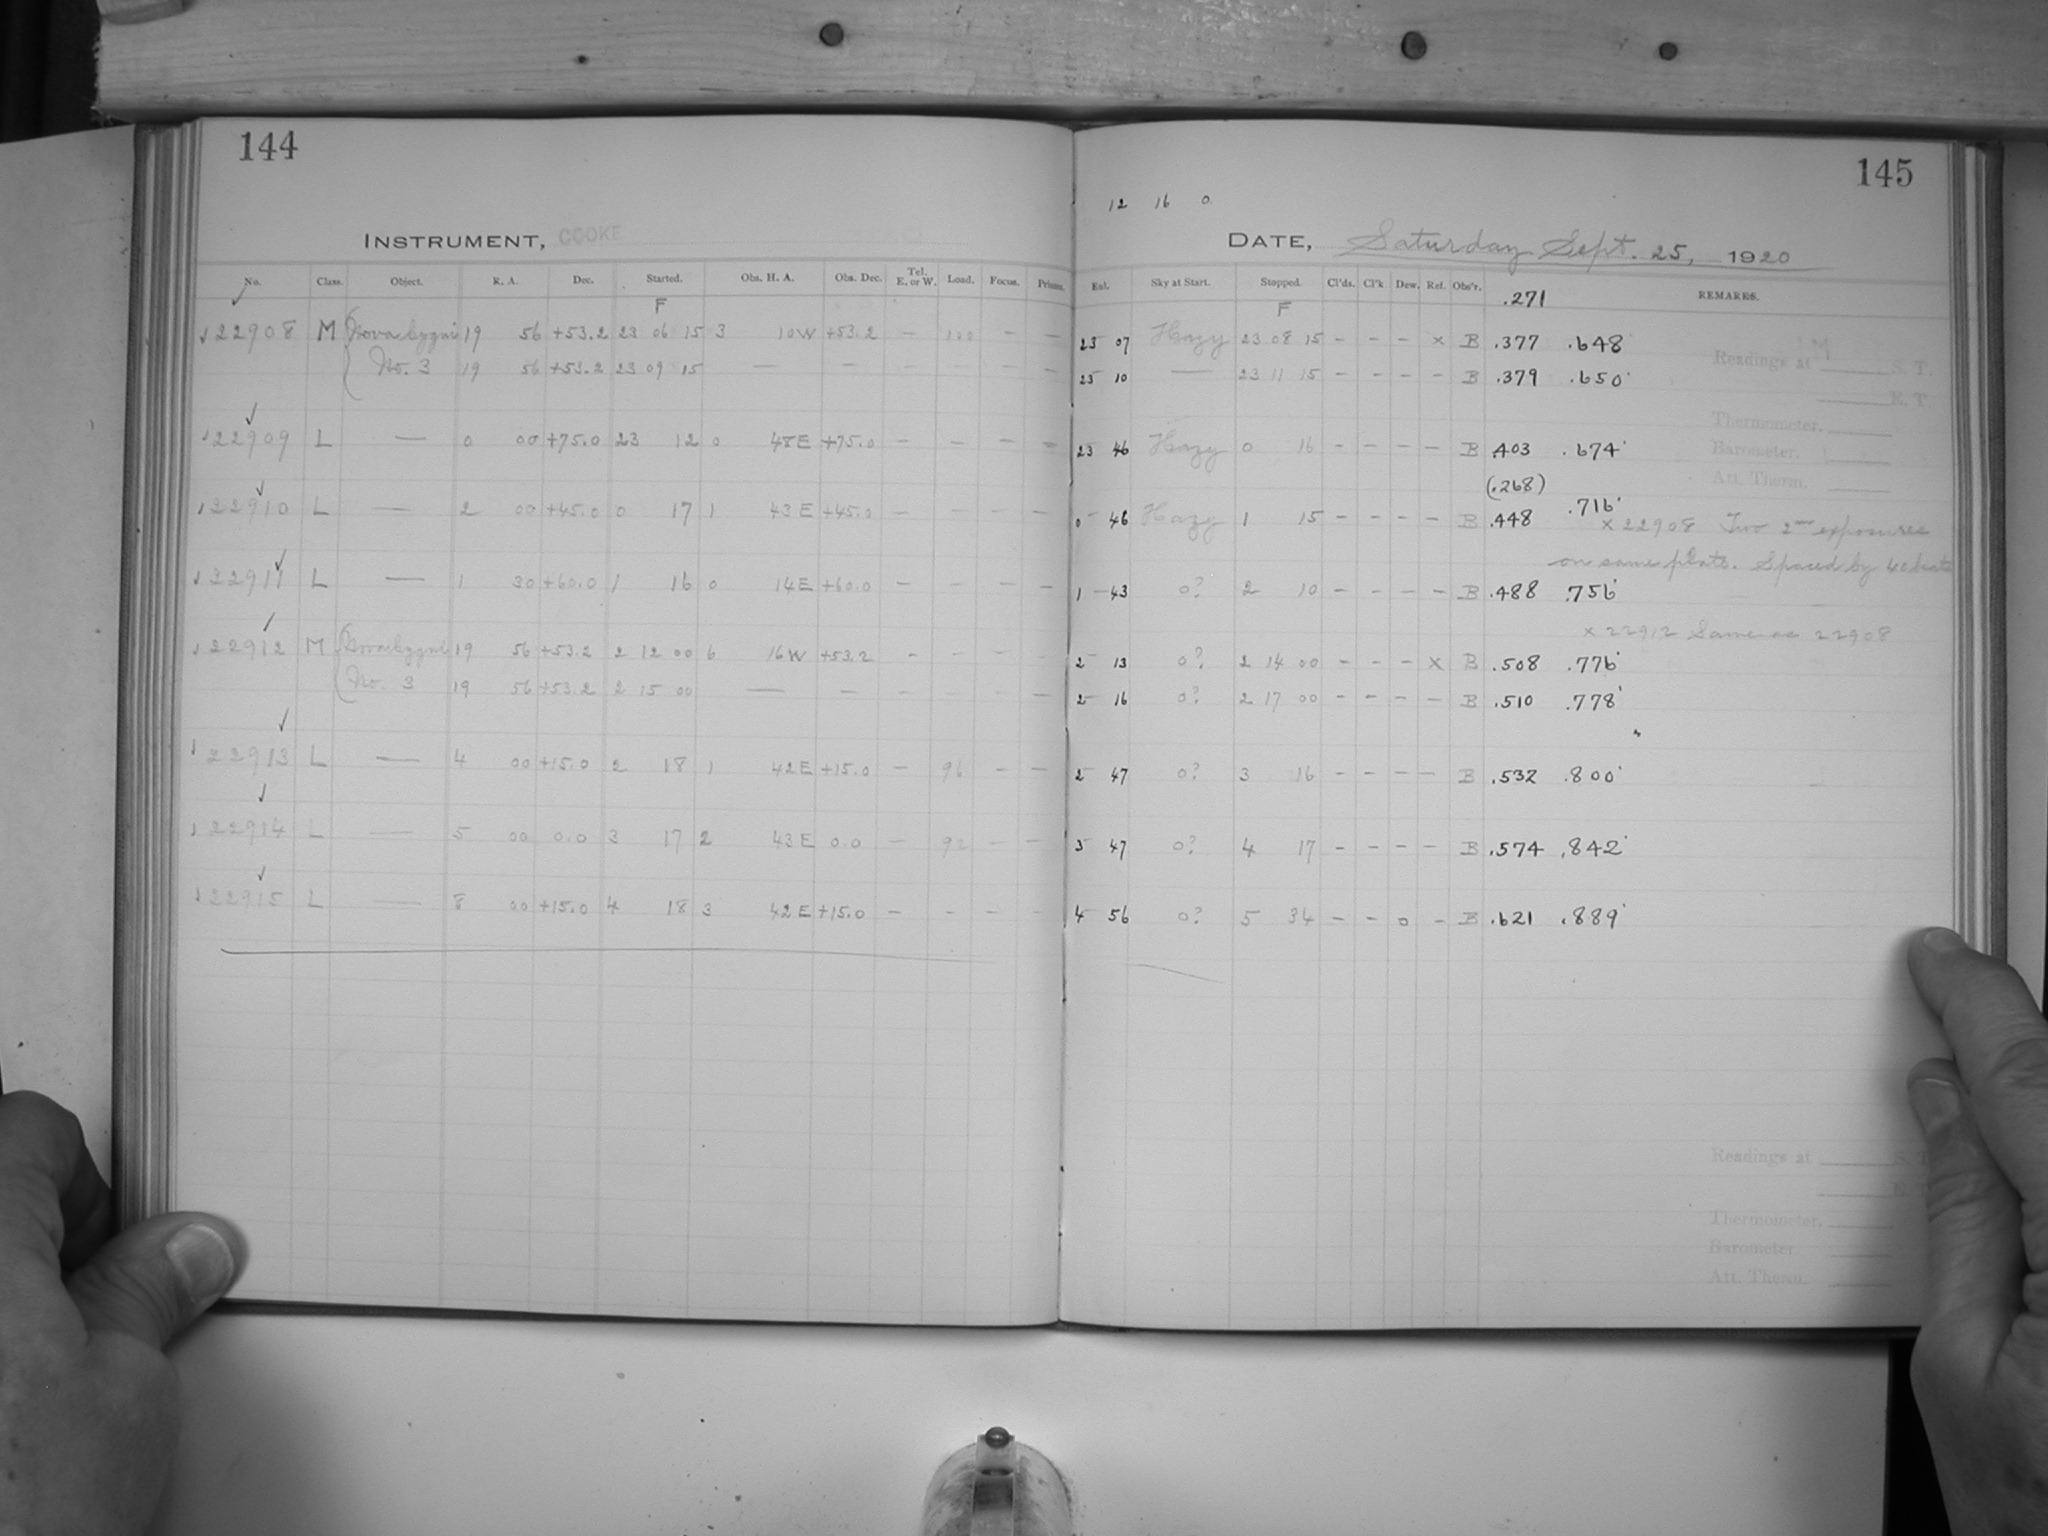 144
INSTRUMENT, COOKE
No. Class. Object. R. A. Dec. Started. Obs. H. A. Obs. Dec. Tel. E. or W. Load. Focus. Prisms.
F
22908 M Nova Cygni 19 56 +53.2 23 06 15 3 10W +53.2 — 100 — —
No. 3 19 56 +53.2 23 09 15 — — — — — —
22909 L — 0 00 +75.0 23 12 0 48E +75.0 — — — —
22910 L — 2 00 +45.0 0 17 1 43E +45.0 — — — —
22911 L — 1 30 +60.0 1 16 0 14E +60.0 — — — —
22912 M Nova Cygni 19 56 +53.2 2 12 00 6 16W +53.2 — — — —
No. 3 19 56 +53.2 2 15 00 — — — — — —
22913 L — 4 00 +15.0 2 18 1 42E +15.0 — 96 — —
22914 L — 5 00 0.0 3 17 2 43E 0.0 — 92 — —
22915 L — 8 00 +15.0 4 18 3 42E +15.0 — — — —
145
12 16 0
DATE, Saturday Sept. 25, 1920
Sky at Start. Stopped. Cl'ds. Cl'k Dew. Ref. Obs'r. .271 REMARKS.
F
23 07 Hazy 23 08 15 — — — x B .377 .648
Readings at S. T.
23 10 — 23 11 15 — — — — B .379 .650
E. T.
Thermometer,
23 46 Hazy 0 16 — — — — B .403 .674
Barometer,
(.268) Att. Therm.
0 46 Hazy 1 15 — — — — B .448 .716
x 22908 Two 2m exposures
on same plate. Spaced by 40
1 43 0? 2 10 — — — — B .488 .756
x 22912 Same as 22908
2 13 0? 2 14 00 — — — x B .508 .776
2 16 0? 2 17 00 — — — — B .510 .778
2 47 0? 3 16 — — — — B .532 .800
3 47 0? 4 17 — — — — B .574 .842
4 56 0? 5 34 — — 0 — B .621 .889
Readings at S. T.
Thermometer,
Barometer
Att. Therm.